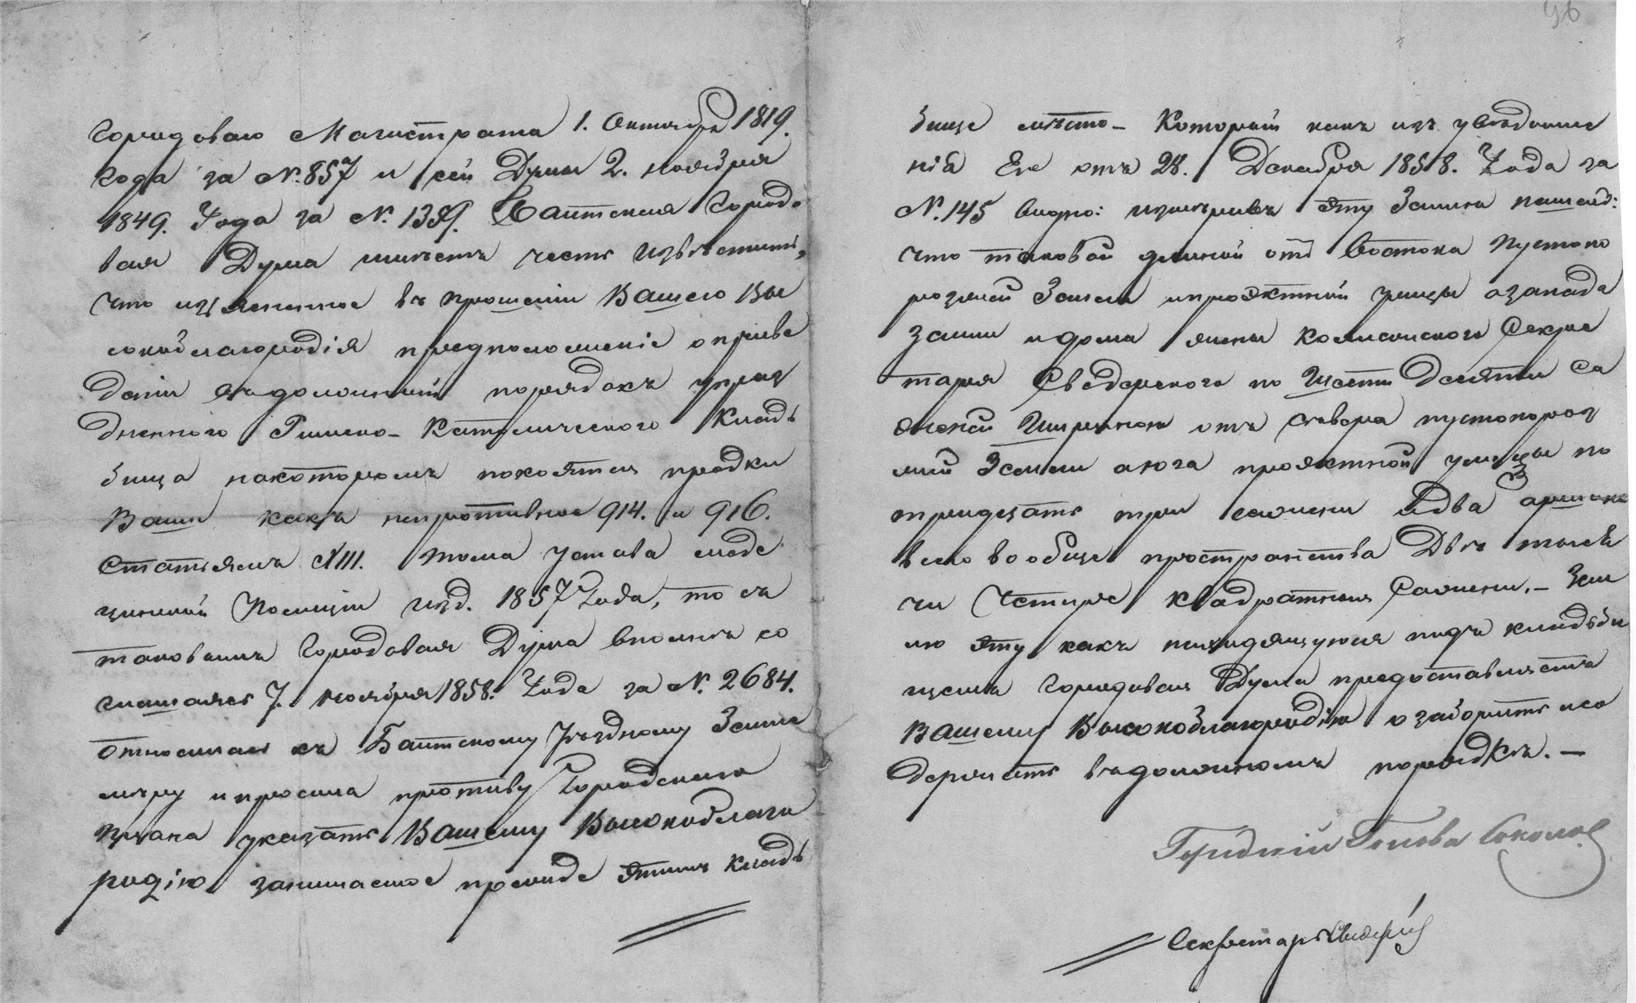 96
Городоваго Магистрата 1. Октября 1819.
года за №. 857 и сей Думы 2. ноября
1849. Года за №. 1359. Балтская Городо
вая Дума имѣетъ честь извѣстить,
что изъясненное въ прошеніи Вашего Вы
сокоблагородія предположеніе о приве
деніи въ должный порядокъ упраз
дненного Римско-Католического Кладъ
бища на которомъ покоятся предки
Ваши какъ непротивное 914. и 916.
Статьямъ XIII. тома устава меде
цинской Полиціи изд. 1857 Года, то съ
таковымъ Городовая Дума вполнѣ со
глашаясь 7. ноября 1858. Года за №. 2684.
относилась къ Балтскому Уѣздному Земле
мѣру и просила противу Городскаго
Плана указать Вашему Высокоблаго
родію занимаемое прежде этимъ Кладъ
бище мѣсто- Который какъ изъ увѣдомле
нія Его отъ 28. Декабря 1858. Года за
№. 145 видно: измѣривъ эту Землю нашелъ:
что таковой длиной отъ Востока пустопо
рожней Земли и проэктной улицы а запада
земли и дома жены Коллежского Секре
таря Сведерского по Шести Десяти Са
женей Шириною отъ Сѣвера пустопорож
ней Земли а юга проэктной улицы по
тридцать три сажени Два аршина
всего вообще пространства Двѣ тыся
чи Четыре квадратныхъ Сажени.- Зем
лю эту какъ находящуюся подъ кладьби
щемъ Городовая Дума предоставляетъ
Вашему Высокоблагородію огородить и со
держать въ должномъ порядкѣ.-
Городской Голова Соколов
Секретарь